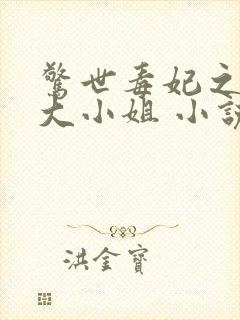 驚世毒妃之
大小姐 小說
洪金寶